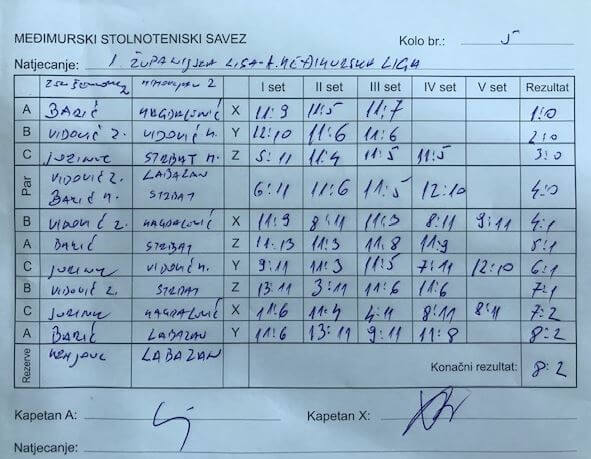 MEĐIMURSKI STOLNOTENISKI SAVEZ
Kolo br.: 5
Natjecanje: 1. ŽUPANIJSKA LIGA-1. MEĐIMURSKA LIGA
2 2 I set II set III set IV set V set Rezultat
A BARIĆ MAGDALENIĆ X 11:9 11:5 11:7 1:0
B VIDOVIĆ Z. VIDOVIĆ N. Y 12:10 11:6 11:6 2:0
C STRBAT N. Z 5:11 11:4 11:5 11:5 3:0
Par VIDOVIĆ Z. LABAZAN
BARIĆ N. STRBAT 6:11 11:6 11:5 12:10 4:0
B VIDOVIĆ Z. MAGDALENIĆ X 11:9 8:11 11:3 8:11 9:11 4:1
A BARIĆ STRBAT Z 11:13 11:3 11:8 11:9 5:1
C VIDOVIĆ N. Y 9:11 11:3 11:5 7:11 12:10 6:1
B VIDOVIĆ Z. STRBAT Z 13:11 3:11 11:6 11:6 7:1
C MAGDALENIĆ X 11:6 11:4 4:11 8:11 8:11 7:2
A BARIĆ LABAZAN Y 11:6 13:11 9:11 11:8 8:2
Rezerve LABAZAN Konačni rezultat: 8:2
Kapetan A: Kapetan X:
Natjecanje: